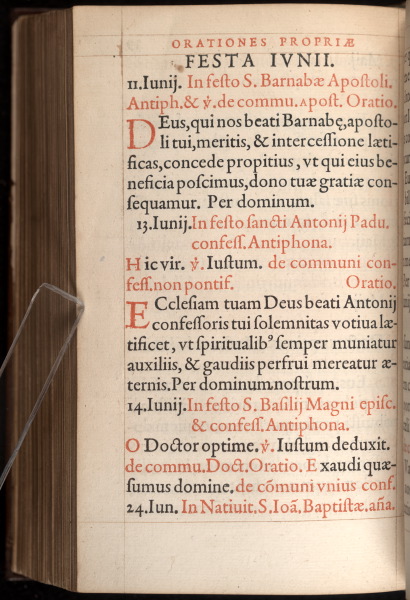 ORATIONES PROPRIÆ
FESTA IVNII.
11.Iunij. In festo S. Barnabæ Apostoli.
Antiph.& ℣. de commu. Apost. Oratio.
DEus, qui nos beati Barnabę, aposto-
li tui, meritis, & intercessione læti-
ficas, concede propitius, vt qui eius be-
neficia poscimus, dono tuæ gratiæ con-
sequamur. Per dominum.
13.Iunij. In festo sancti Antonij Padu.
confess. Antiphona.
Hic vir. ℣. Iustum. de communi con-
fess. non pontif. Oratio.
ECclesiam tuam Deus beati Antonij
confessoris tui solemnitas votiua læ-
tificet, vt spiritualibꝰ semper muniatur
auxiliis, & gaudiis perfrui mereatur æ-
ternis. Per dominum nostrum.
14.Iunij. In festo S. Basilij Magni episc.
& confess. Antiphona.
O Doctor optime. ℣. Iustum deduxit.
de commu. Doct. Oratio. Exaudi quæ-
sumus domine. de cõmuni vnius conf.
24.Iun. In Natiuit. S. Ioã. Baptistæ. aña.